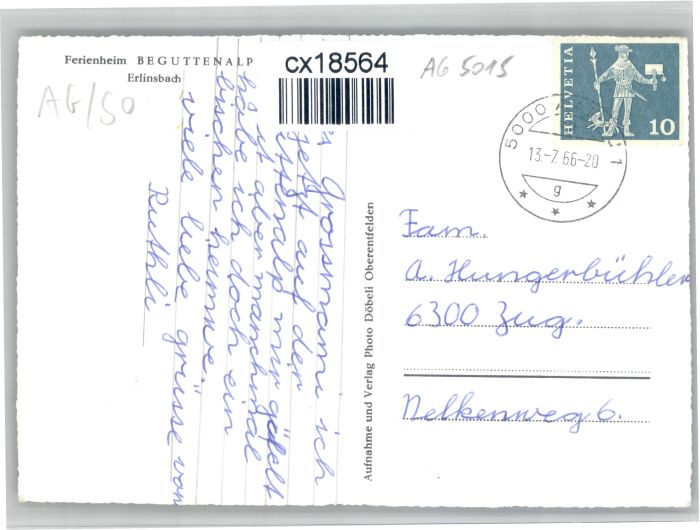 Ferienheim BEGUTTENALP
Erlinsbach
AG/SO
cx18564
AG 5015
HELVETIA
10
5000 1
13.-7.66-20
g
Grossmami ich
jetzt auf der
mir gefelt
s ist aber manchmal
habe ich doch ein
bischen heimwe.
viele liebe grüsse von
Ruthli
Aufnahme und Verlag Photo Döbeli Oberentfelden
Fam.
A. Hungerbühler
6300 Zug.
Nelkenweg 6.